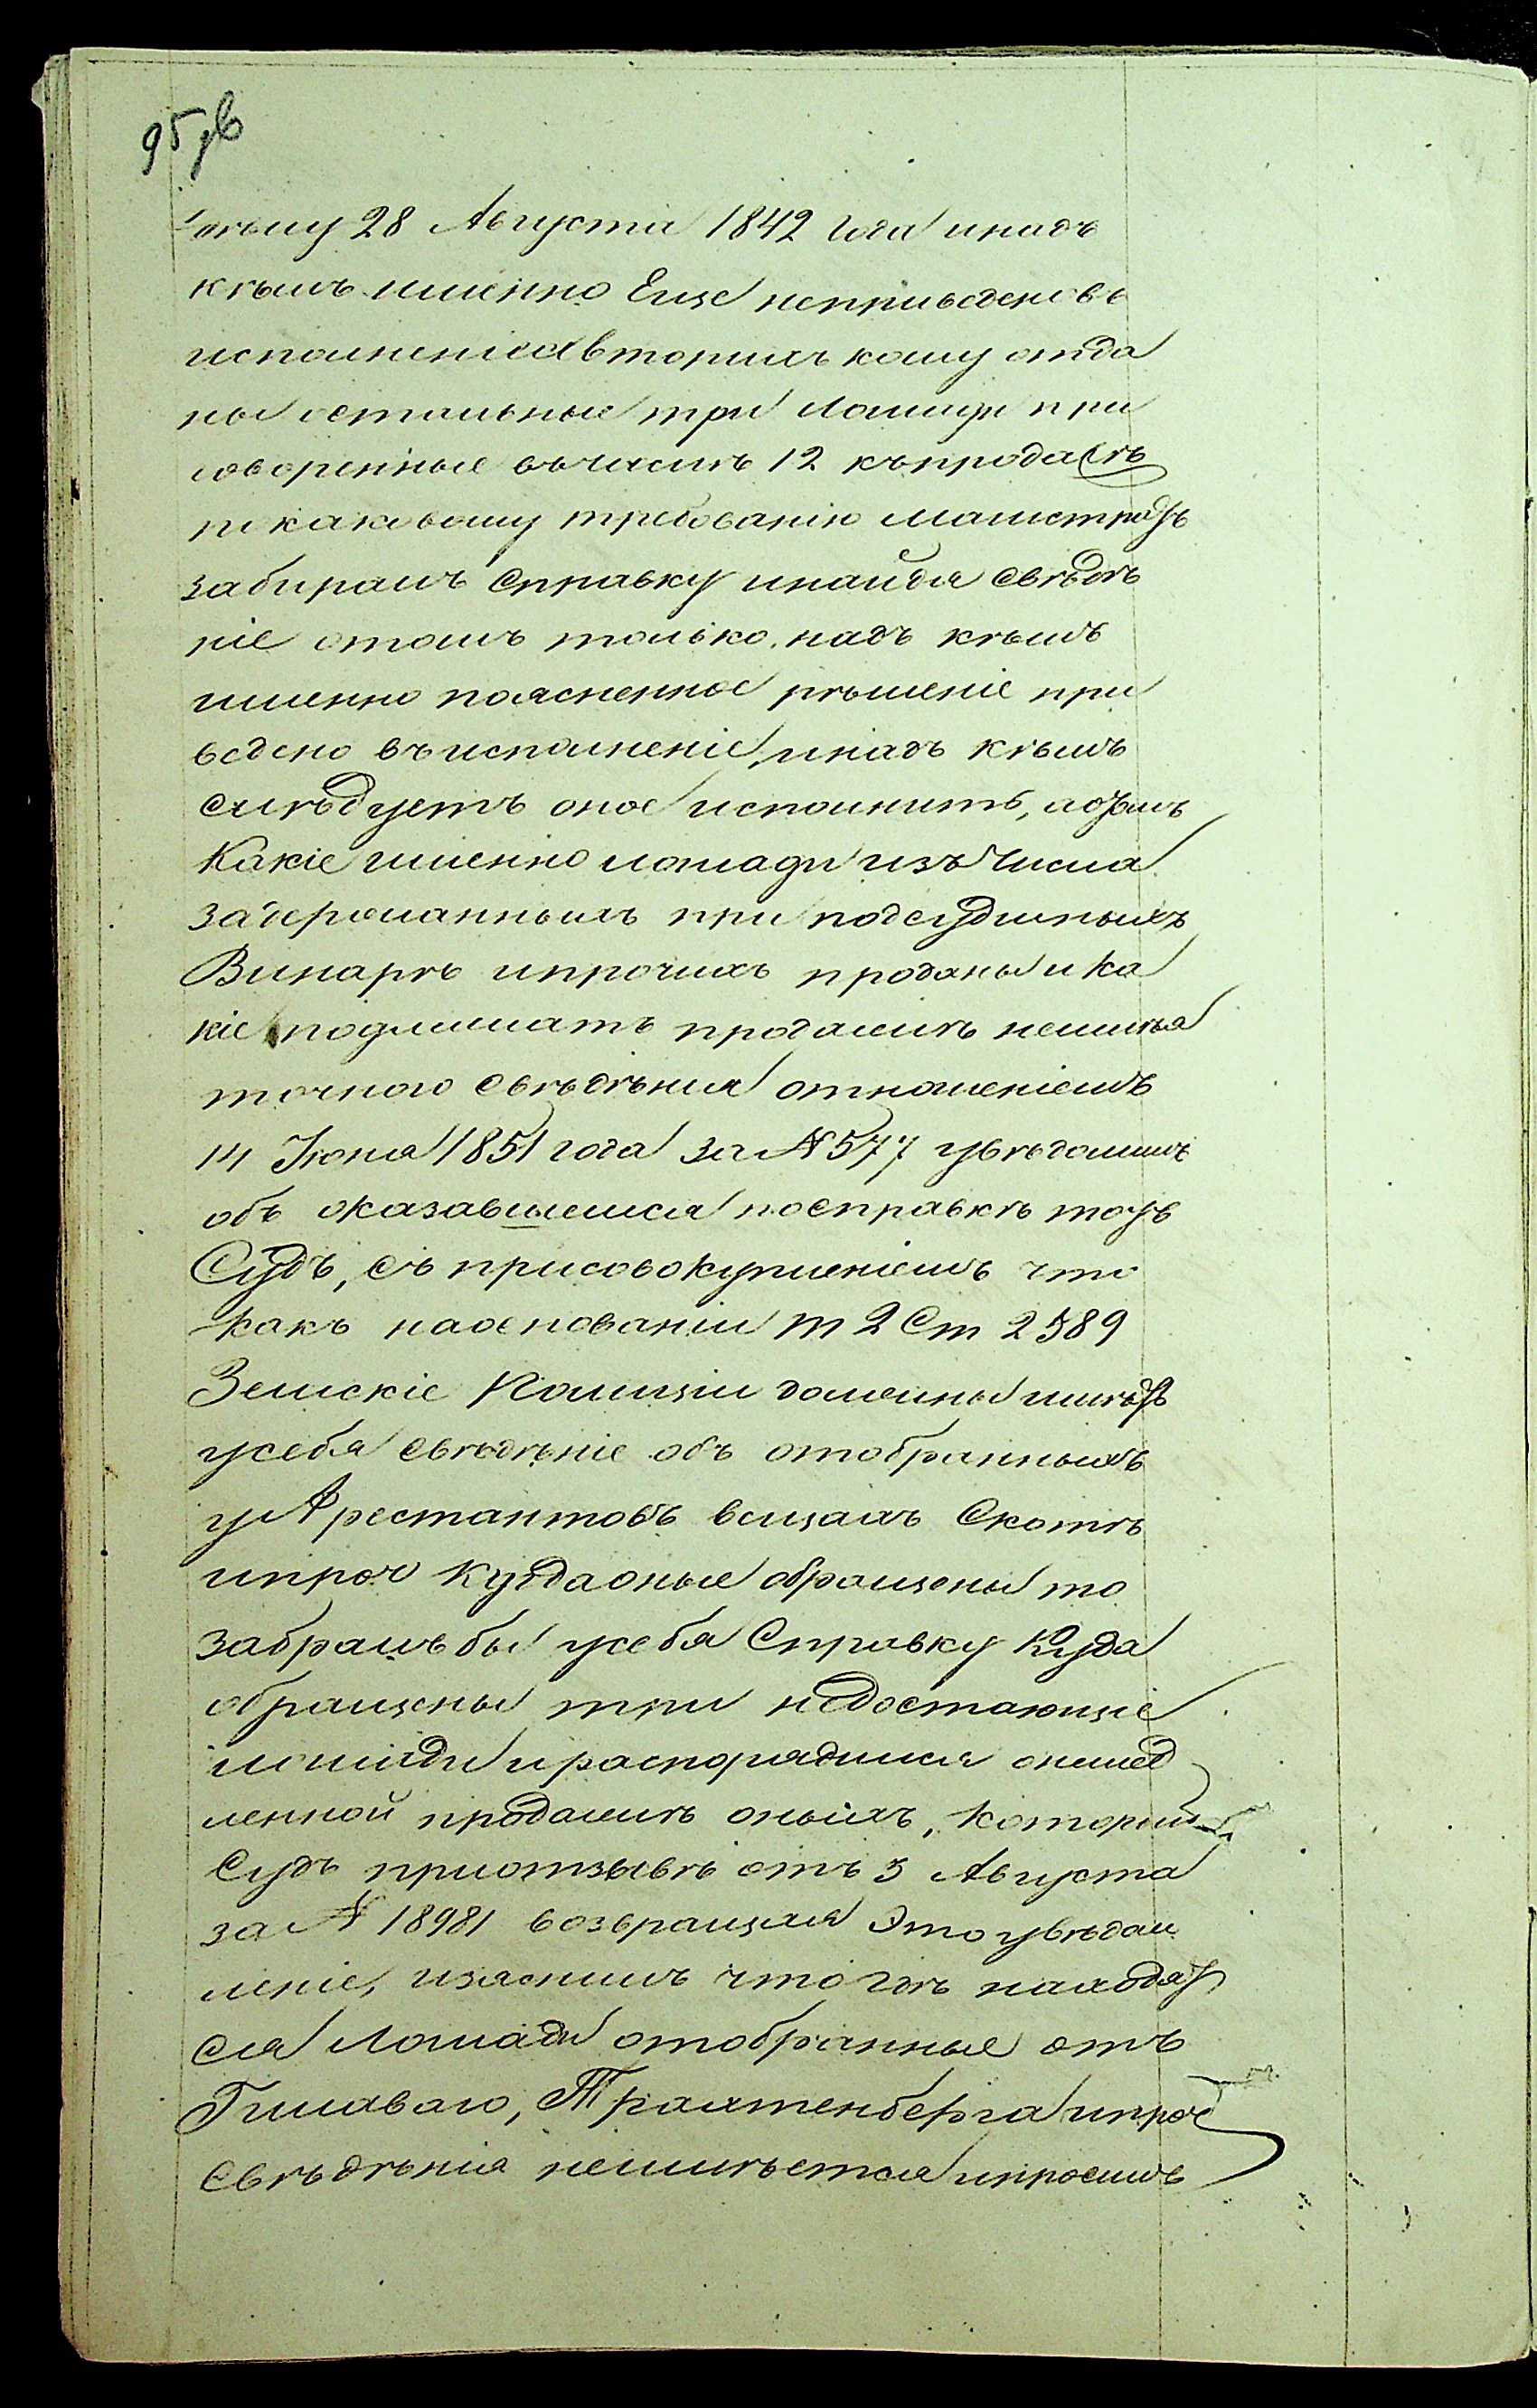 95
ному 28 Августа 1842 года инадъ
кѣмъ именно Еще неприведеновъ
исполненіе а вторихъ кому отда
ны остальные три Лошади при
говоренные въчислѣ 12 къпродажѣ
покаковому требованію Магистратъ
забиралъ справку инайдя свѣдѣ
ніе отомъ только, надъ кѣмъ
именно поясненное рѣшеніе при
ведено въисполненіе, инадъ кѣмъ
слѣдуетъ оное исполнить, аотомъ
Какіе именно лошади изъ Числа
задержанныхъ при подсудимыхъ
Винарѣ ипрочихъ проданы и ка
кіе подлежатъ продажѣ неимѣя
точного свѣдѣния отношеніемъ
14 Іюня 1851 года за № 577 увѣдомилъ
объ оказавшемся посправкѣ тотъ
Судъ, съ присовокупленіемъ что
какъ наосновании т 2 Ст 2589
Земскіе Полиціи должны имѣть
усебя свѣдѣніе объ отобранныхъ
у Арестантовъ вещахъ Скотѣ
ипроч Куда оные обращены то
забралъбы усебя Справку Куда
обращены три недостающіе
лошади и распорядился онемед
ленной продажѣ оныхъ, который
Судъ приотзывѣ отъ 3 Августа
за № 18981 возвращая Это увѣдом
леніе, изяснилъ что гдѣ находят
ся Лошади отобранные отъ
Гилаваго, Трахтенберга ипроч
Свѣдѣнія неимѣется ипросилъ